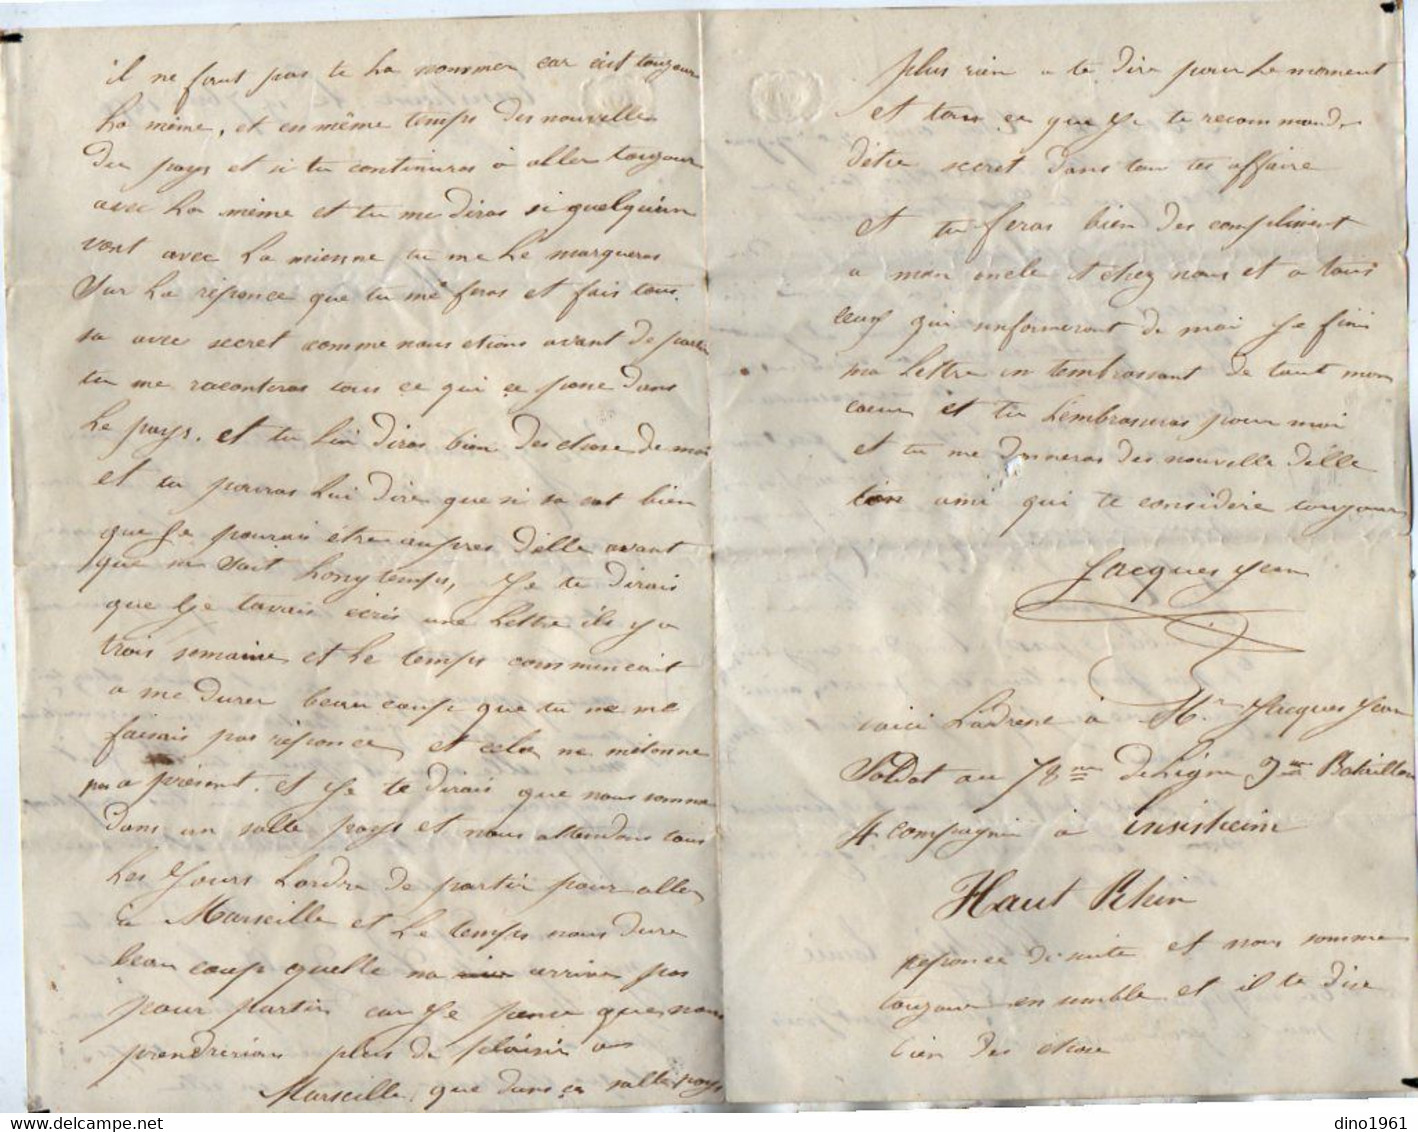 il ne faut pas te la nommer car cest toujours
la même, et en même temps des nouvelle
du pays et si tu continuras à aller toujour
avec la même et tu me diras si quelquun
vont avec la mienne tu me le marqueras
sur la réponce que tu me feras et fais tous
sa avec secret comme nous etions avant de partir
tu me raconteras tous ce qui ce passe dans
le pays. et tu lui diras bien des chose de moi
et tu pouras lui dire que si sa vat bien
que je pourai être aupres d'elle avant
que sa soit longtemps, je te dirais
que je tavais écris une lettre ils y a
trois semaine et le temps commencait
a me durer beaucoup que tu ne me
faisais pas réponce, et cela ne métonne
pas a présent. et je te dirais que nous somme
dans un salle pays et nous attendons tous
les jours lordre de partir pour aller
à Marseille et le temps nous dure
beaucoup quelle na arrive pas
pour partir car je pense que nous
prendrions plus de plaisir a
Marseille, que dans ce salle pays
plus rien a te dire pour le moment
et tous ce que je te recommande
d'être secret dans tou tes affaire
et tu feras bien des compliment
a mon oncle et chez nous et a tous
ceux qui sinformeront de moi je fini
ma lettre en tembrassant de tout mon
coeur et tu lembrasseras pour moi
et tu me donneras des nouvelle d'elle
ton ami qui te considère toujours
Jacques Jean
voici ladresse à Mr Jacques Jean
Soldat au 78me de Ligne Bataillon
4 compagnie à ensisheim
Haut Rhin
reponce de suite et nous somme
toujour ensemble et il te dise
bien des chose
dino1961